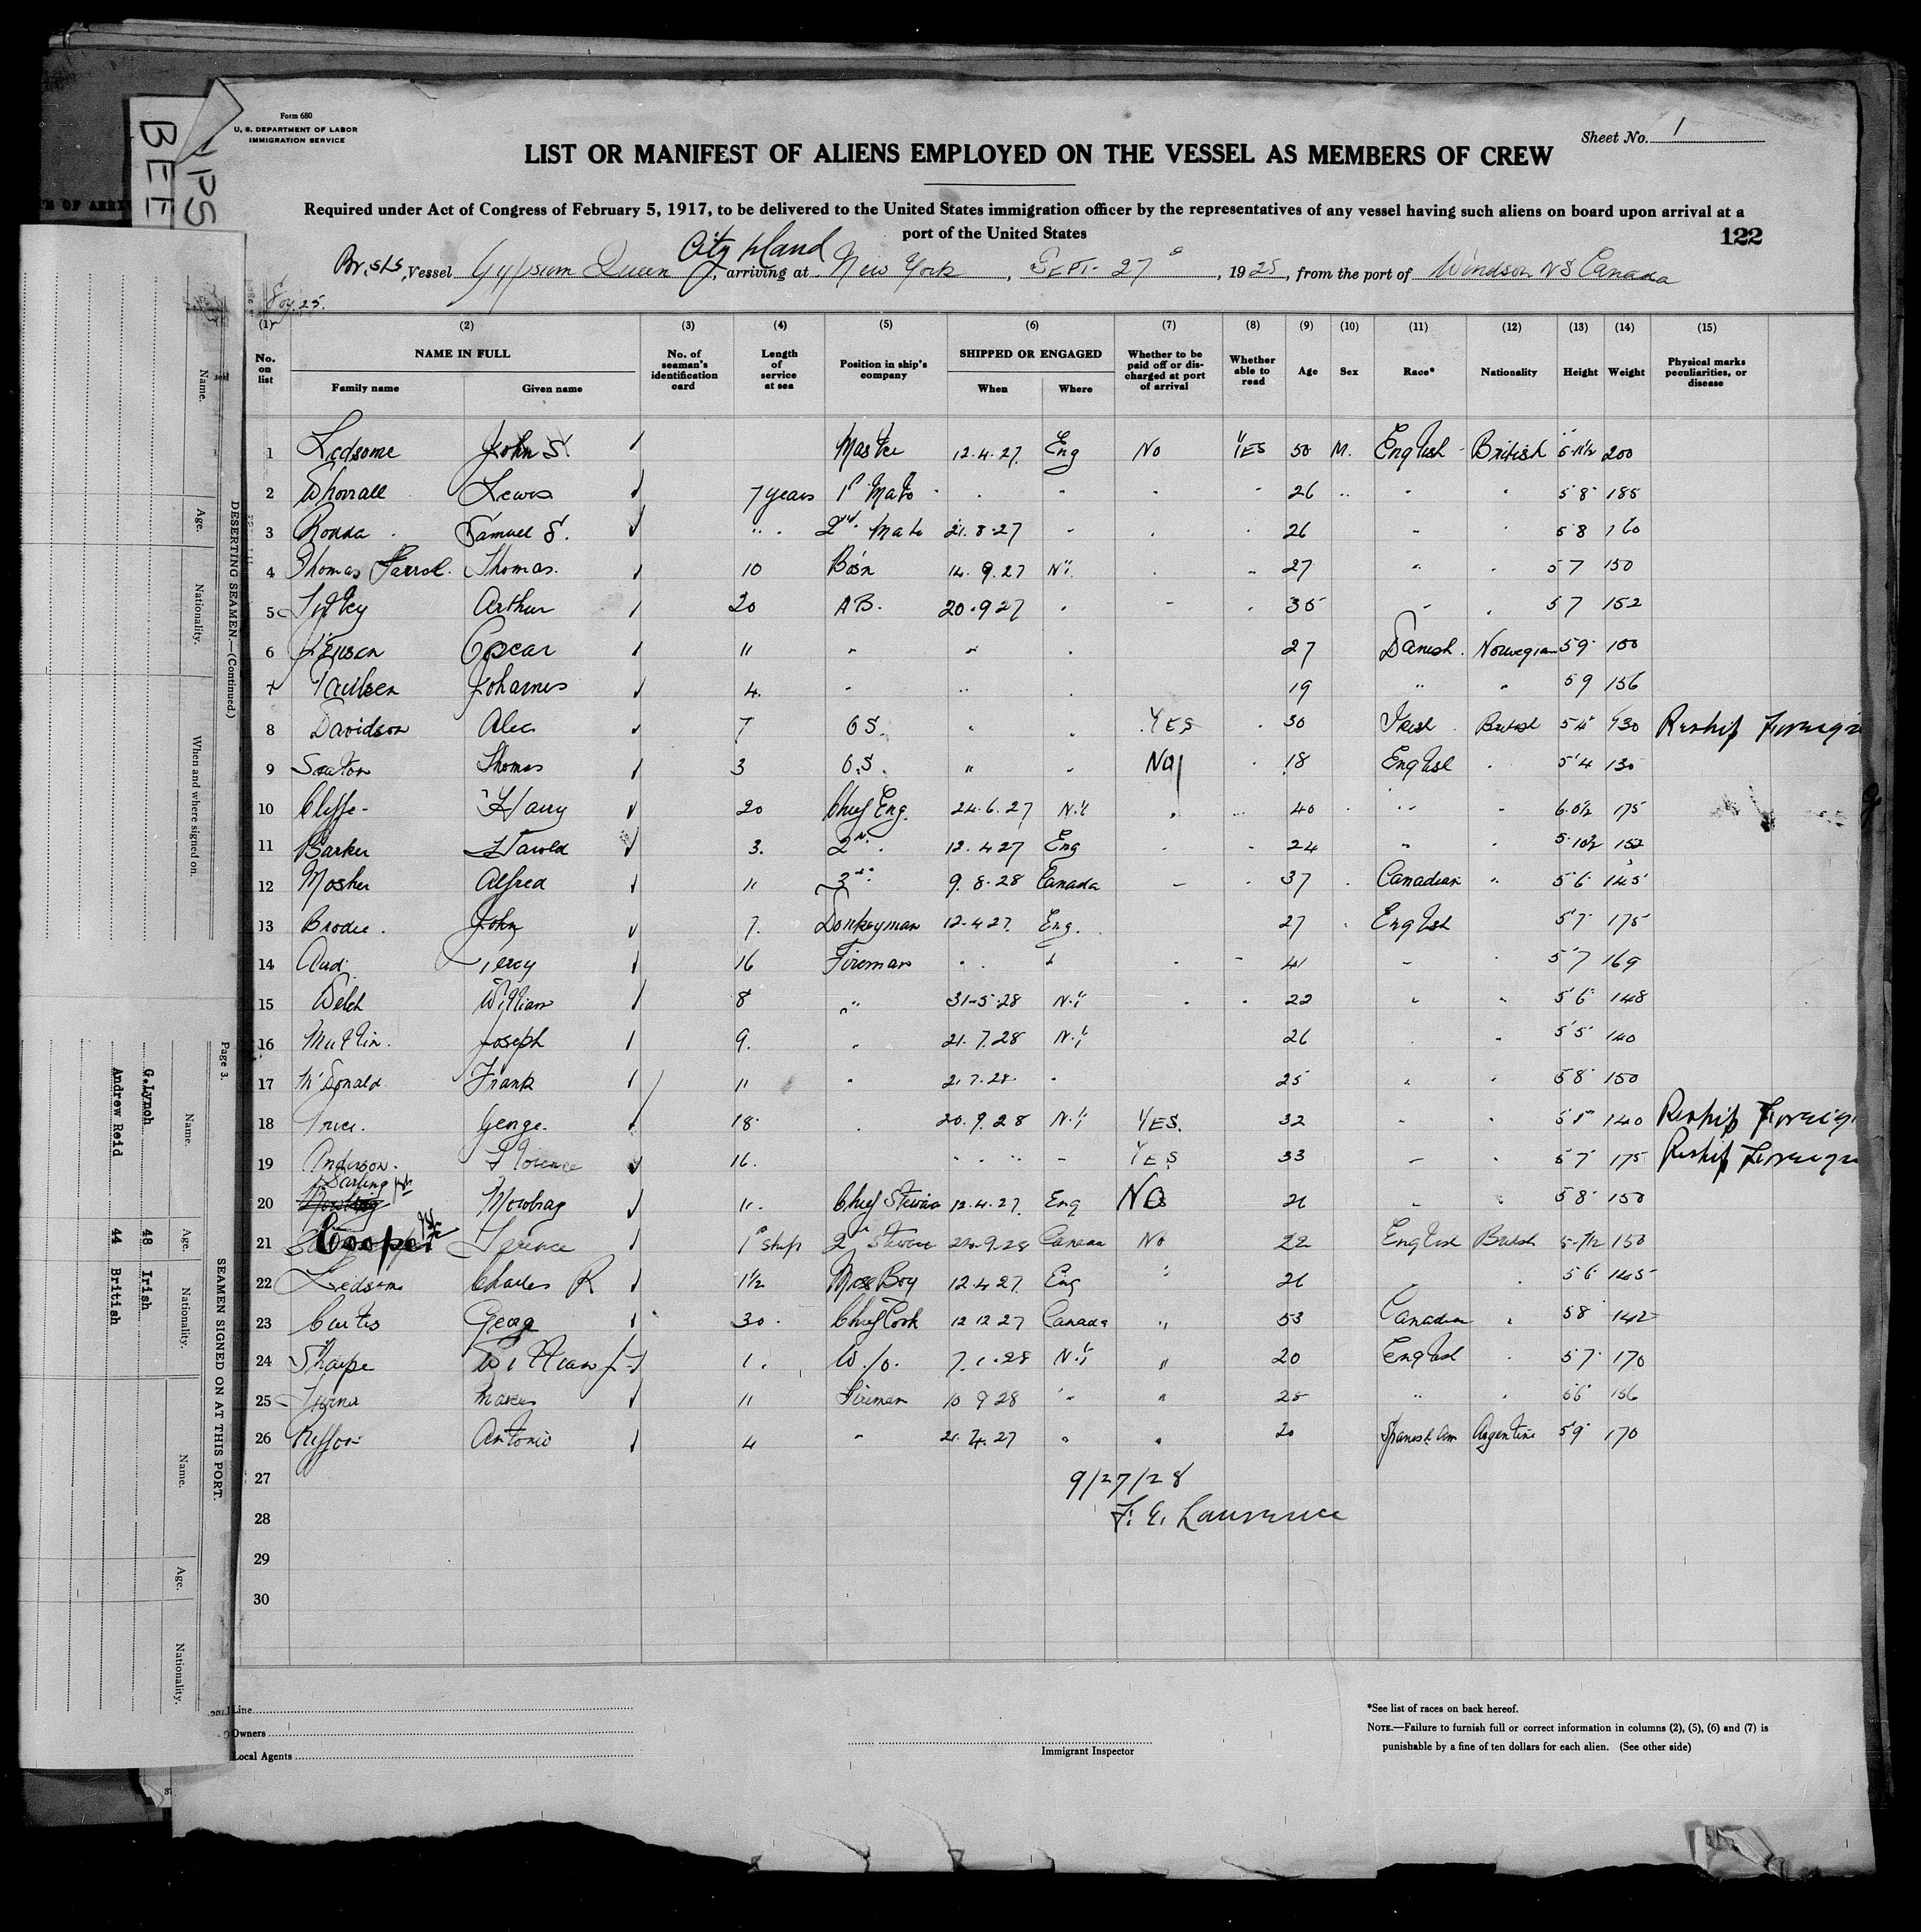 Form 680
U. S. DEPARTMENT OF LABOR
IMMIGRATION SERVICE
Sheet No. 1
LIST OR MANIFEST OF ALIENS EMPLOYED ON THE VESSEL AS MEMBERS OF CREW
Required under Act of Congress of February 5, 1917, to be delivered to the United States immigration officer by the representatives of any vessel having such aliens on board upon arrival at a
port of the United States
122
City Island
Br. S/S, Vessel Gypsum Queen, arriving at New York, SEPT. 27, 1928, from the port of Windsor NS Canada
Voy. 25.
(1) (2) (3) (4) (5) (6) (7) (8) (9) (10) (11) (12) (13) (14) (15)
No. on list NAME IN FULL No. of seaman's identification card Length of service at sea Position in ship's company SHIPPED OR ENGAGED Whether to be paid off or discharged at port of arrival Whether able to read Age Sex Race* Nationality Height Weight Physical marks peculiarities, or disease
Family name Given name When Where
1 Ledsome John S. Master 12.4.27. Eng No YES 50 M. English British 5-11½ 200
2 Whorrall Lewis 7 years 1st Mate 26 5 8 185
3 Rodda Samuel S. " 2nd Mate 21.8.27 26 5 8 160
4 Thomas Thomas. 10 Bosn 14.9.27 N.Y. 27 5 7 150
5 Arthur 20 AB. 20.9 27 35 5 7 152
6 Jensen Oscar 11 27 Danish. Norwegian 5 9 150
7 Paulsen Johannes 4. 19 5 9 156
8 Davidson Alec 7 O S. YES 30 Irish British 5 4 130 Reship Foreign
9 Seaton Thomas 3 O.S. " No 18 English 5'4 130
10 Cliffe Harry 20 Chief Eng. 24.6.27 N.Y. 40 6.0½ 175
11 Barker Harold 3. 2nd. 12.4 27 Eng 24 5 10½ 152
12 Mosher Alfred 11 3rd 9.8.28 Canada 37 Canadian " 5 6 145
13 Brodie. John 7. Donkeyman 12.4 27. Eng. 27 English 5'7 175
14 Percy 16 Fireman 41 5'7 169
15 Welch William 8 " 31-5-28 N.Y. 22 5'6 148
16 Joseph 9. 21.7.28 N.Y. 26 5'5 140
17 McDonald Frank 11 2.7.28. 25 5 8 150
18 George. 18. 20.9.28 N.Y. YES. 32 140 Reship Foreign
19 Anderson. Florence 16. YES 33 5 7 175 Reship Foreign
Darling
20 Mowbray 11. Chief Steward 12.4.27. Eng No 21 5 8 150
21 Cooper Terence 1st ship 2nd Steward 9.28 Canada No 22 English British 5-7½ 150
22 Ledsome Charles R 1½ Mess Boy 12.4 27. Eng 5 6 145
23 Curtis George 30. Chief Cook 12 12 27 Canada " 53 Canadian 5 8 142
24 Sharpe William 1. W./O. 7.1.28 N.Y. " 20 English 5 7. 170
25 Turner 11 Fireman 10 9 28 " 156
26 Antonio 4 21.4.27 20 Spanish Am Argentine 5 9 170
27
28
29
30
9/27/28
F. E. Laurence
Line
Owners
Local Agents
Immigrant Inspector
*See list of races on back hereof.
NOTE.—Failure to furnish full or correct information in columns (2), (5), (6) and (7) is
punishable by a fine of ten dollars for each alien. (See other side)
BEE
DESERTING SEAMEN.—(Continued.)
Name.
Age.
Nationality.
When and where signed on.
Page 3.
SEAMEN SIGNED ON AT THIS PORT.
Name. Age. Nationality. Name. Age. Nationality.
G.Lynch 48 Irish
Andrew Reid 44 British